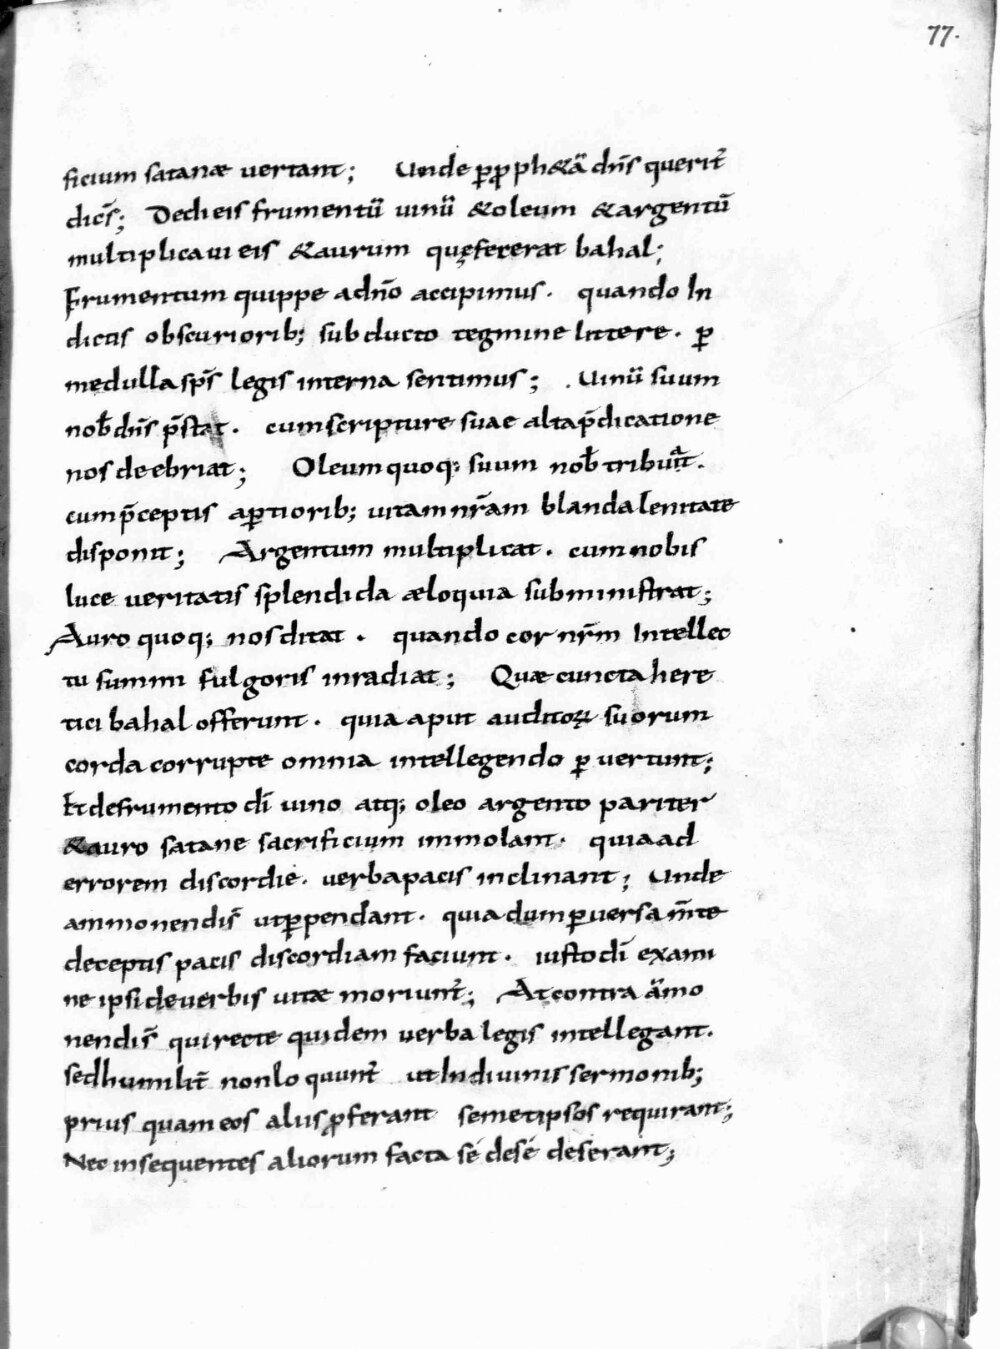 77.
ficium satanæ vertant; Unde p̱ p̱ph&ā dn̄s querit᷑
dicē̄s; Dedi eis frumentū vinū &oleum &argentū
multiplicavi eis &aurum quęfecerat bahal;
Frumentum quippe adn̄o accipimus. quando In
dictis obscuriorib; subducto tegmine littere. ꝑ
medulla sp̄s legis interna sentimus; Vinū suum
nob̄ dn̄s p̄stat. cum scripture suae alta p̄dicatione
nos deebriat; Oleum quoq; suum nob̄ tribuit.
cum p̄ceptis aꝑtiorib; vitam nr̄am blanda lenitate
disponit; Argentum multiplicat. cum nobis
luce veritatis splendida æloquia subministrat;
Auro quoq; nos ditat. quando cor nr̄m Intellec
tu summi fulgoris inradiat; Quæ cuncta here
tici bahal offerunt. quia aput auditoꝝ suorum
corda corrupte omnia intellegendo ꝑvertunt;
Et de frumento dī vino atq; oleo argento pariter
&auro satane sacrificium immolant. quia ad
errorem discordie. verba pacis inclinant; Unde
ammonendis̄ ut ꝑpendant. quia dum ꝑversa m̄te
deceptis pacis discordiam faciunt. iusto dī exami
ne ipsi de verbis vitæ moriunt᷑; At contra āmo
nendis̄ qui recte quidem verba legis intellegant.
sed humilit᷑ non loquunt᷑ ut In divinis sermonib;
prius quam eos aliis ꝓferant semetipsos requirant;
Nec insequentes aliorum facta sé desé deserant;